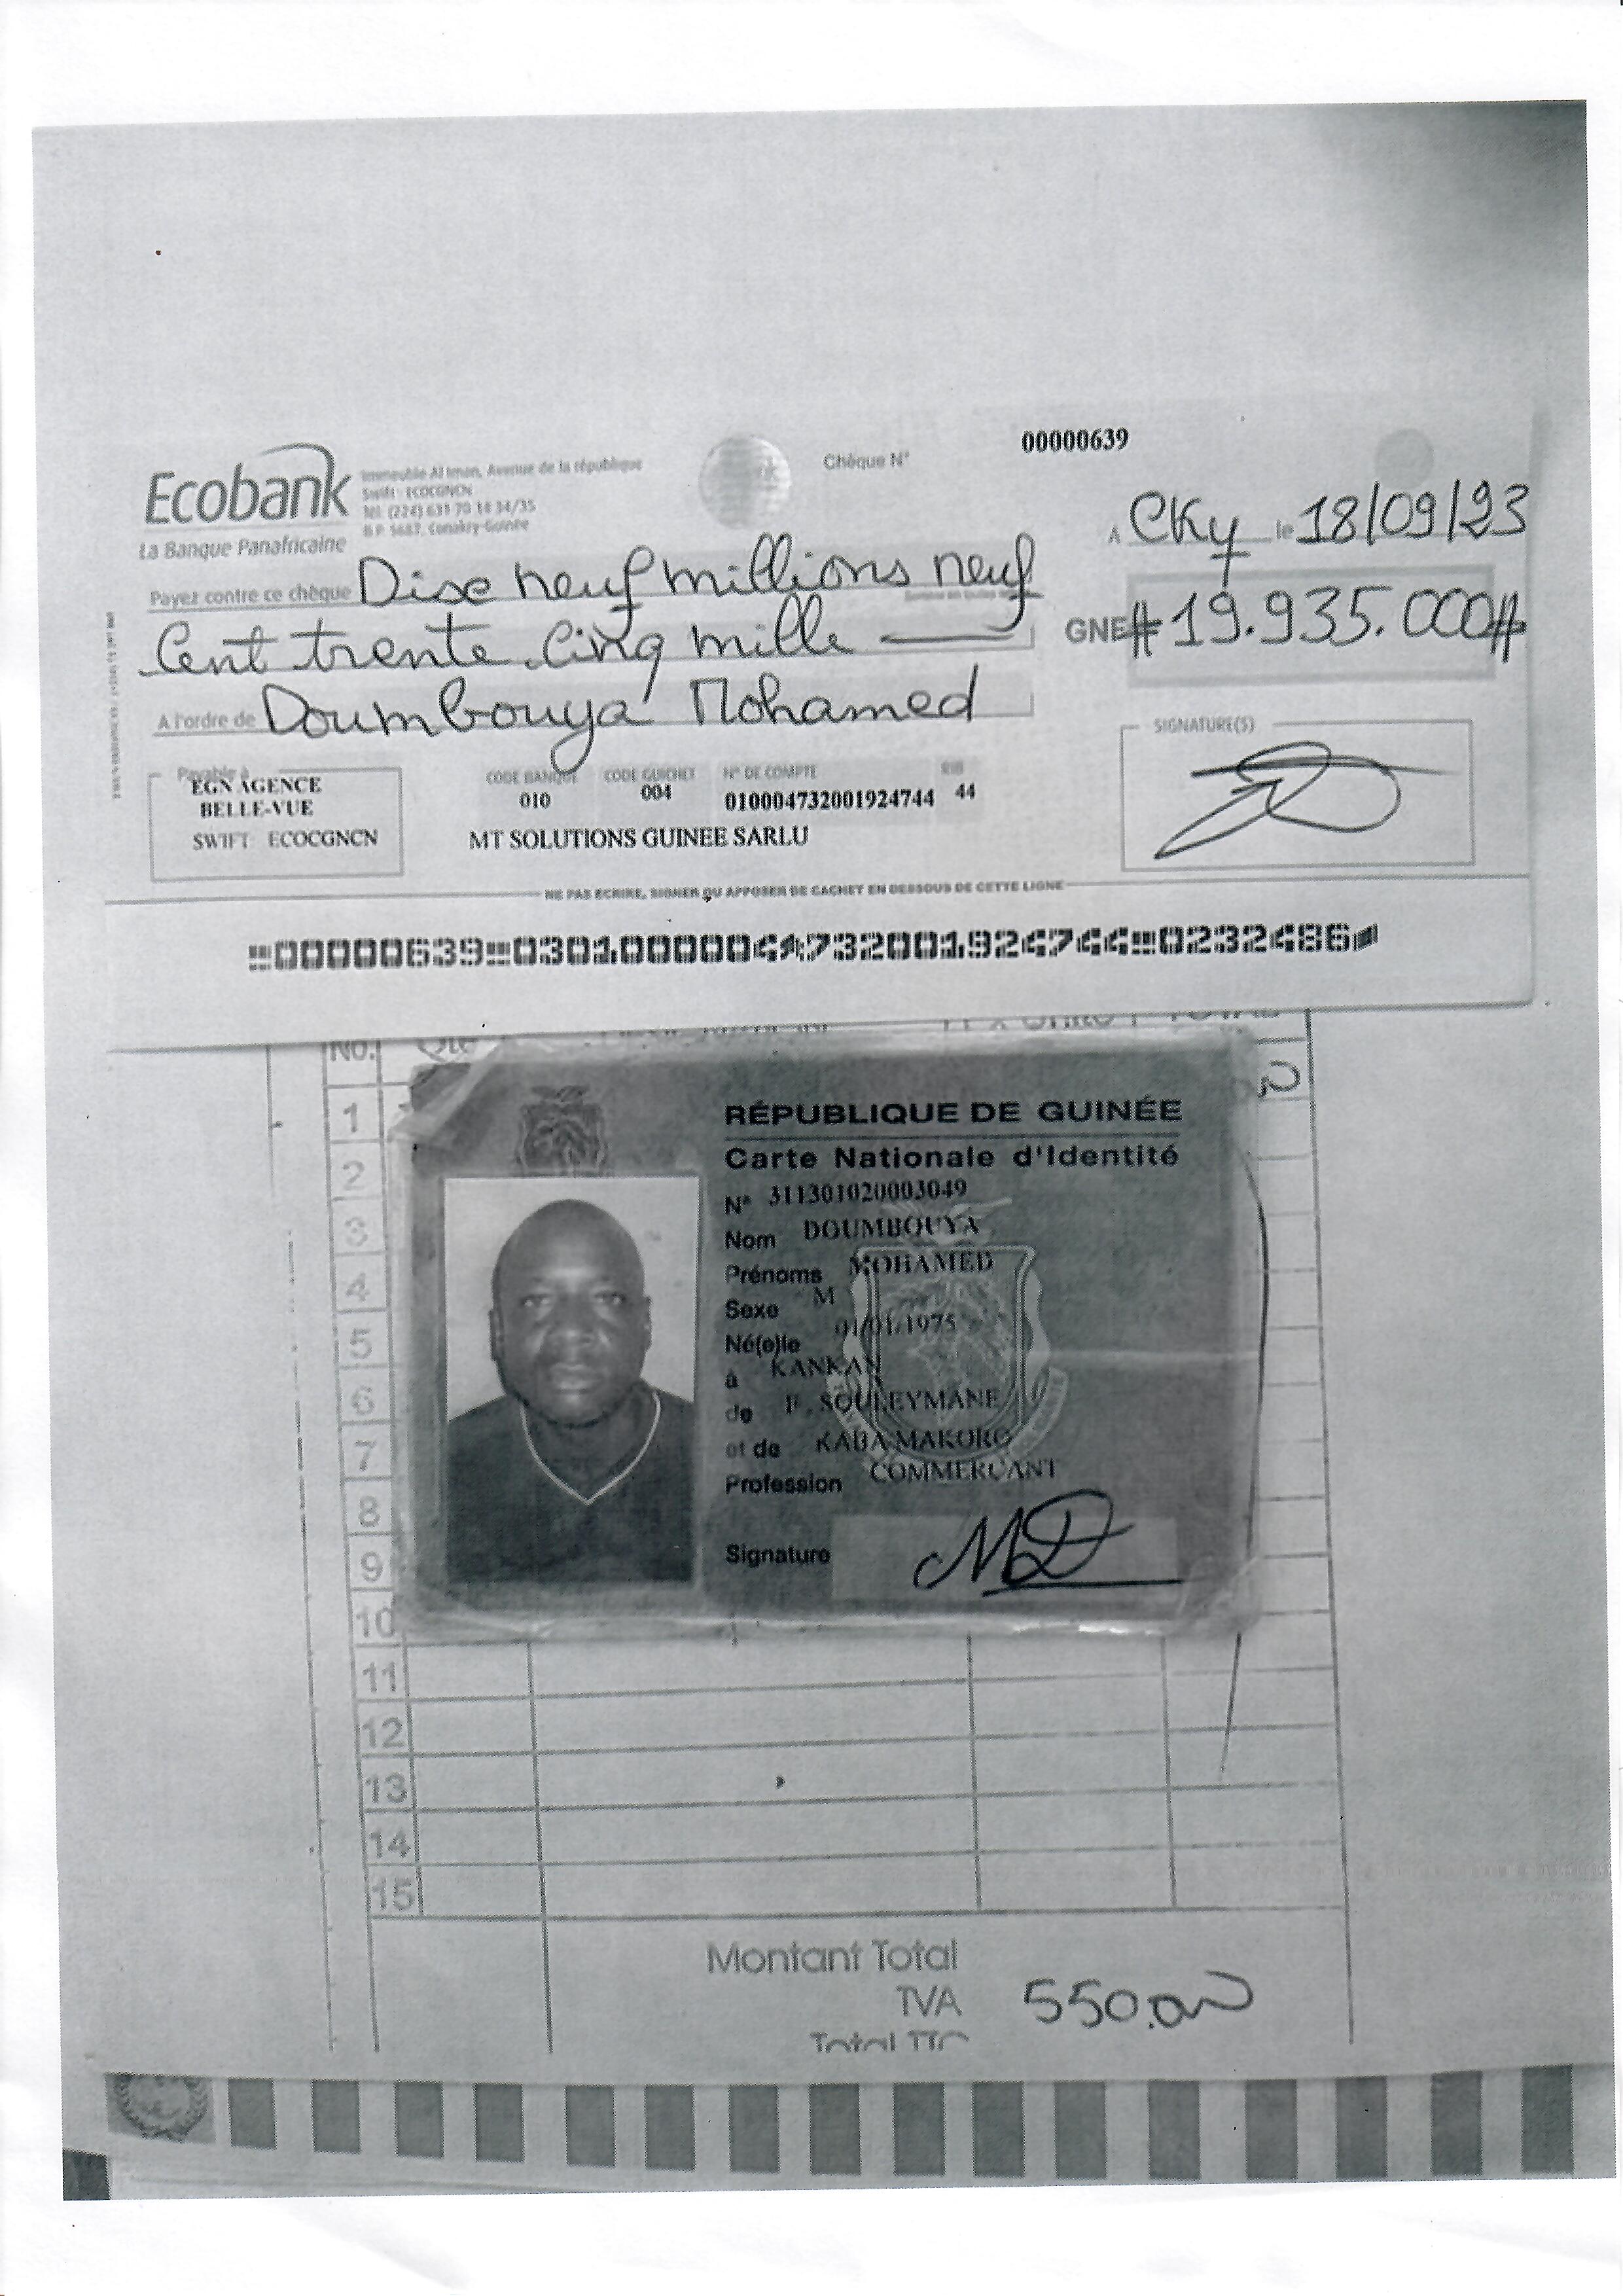 00000639
Chèque N°
Ecobank
La Banque Panafricaine
Immeuble Al Iman, Avenue de la république
Swift : ECOCGNCN
Tél. (224) 631 70 14 34/35
B.P. 5687, Conakry-Guinée
A CKy le 18/09/23
Payez contre ce chèque Dixe neuf millions neuf
Cent trente Cinq mille
GNF # 19.935.000 #
A l'ordre de Doumbouya Mohamed
SIGNATURE(S)
Payable à
EGN AGENCE
BELLE-VUE
SWIFT: ECOCGNCN
CODE BANQUE CODE GUICHET N° DE COMPTE RIB
010 004 010004732001924744 44
MT SOLUTIONS GUINEE SARLU
NE PAS ECRIRE, SIGNER OU APPOSER DE CACHET EN DESSOUS DE CETTE LIGNE
00000639 030100000 4732001924744 0232486
No. Qté TOTAL
RÉPUBLIQUE DE GUINÉE
Carte Nationale d'Identité
N° 311301020003049
Nom DOUMBOUYA
Prénoms MOHAMED
Sexe M
Né(e)le 01/01/1975
à KANKAN
de F. SOULEYMANE
et de KABA MAKORO
Profession COMMERCANT
Signature MD
1
2
3
4
5
6
7
8
9
10
11
12
13
14
15
Montant Total
TVA 550.000
Total TTC